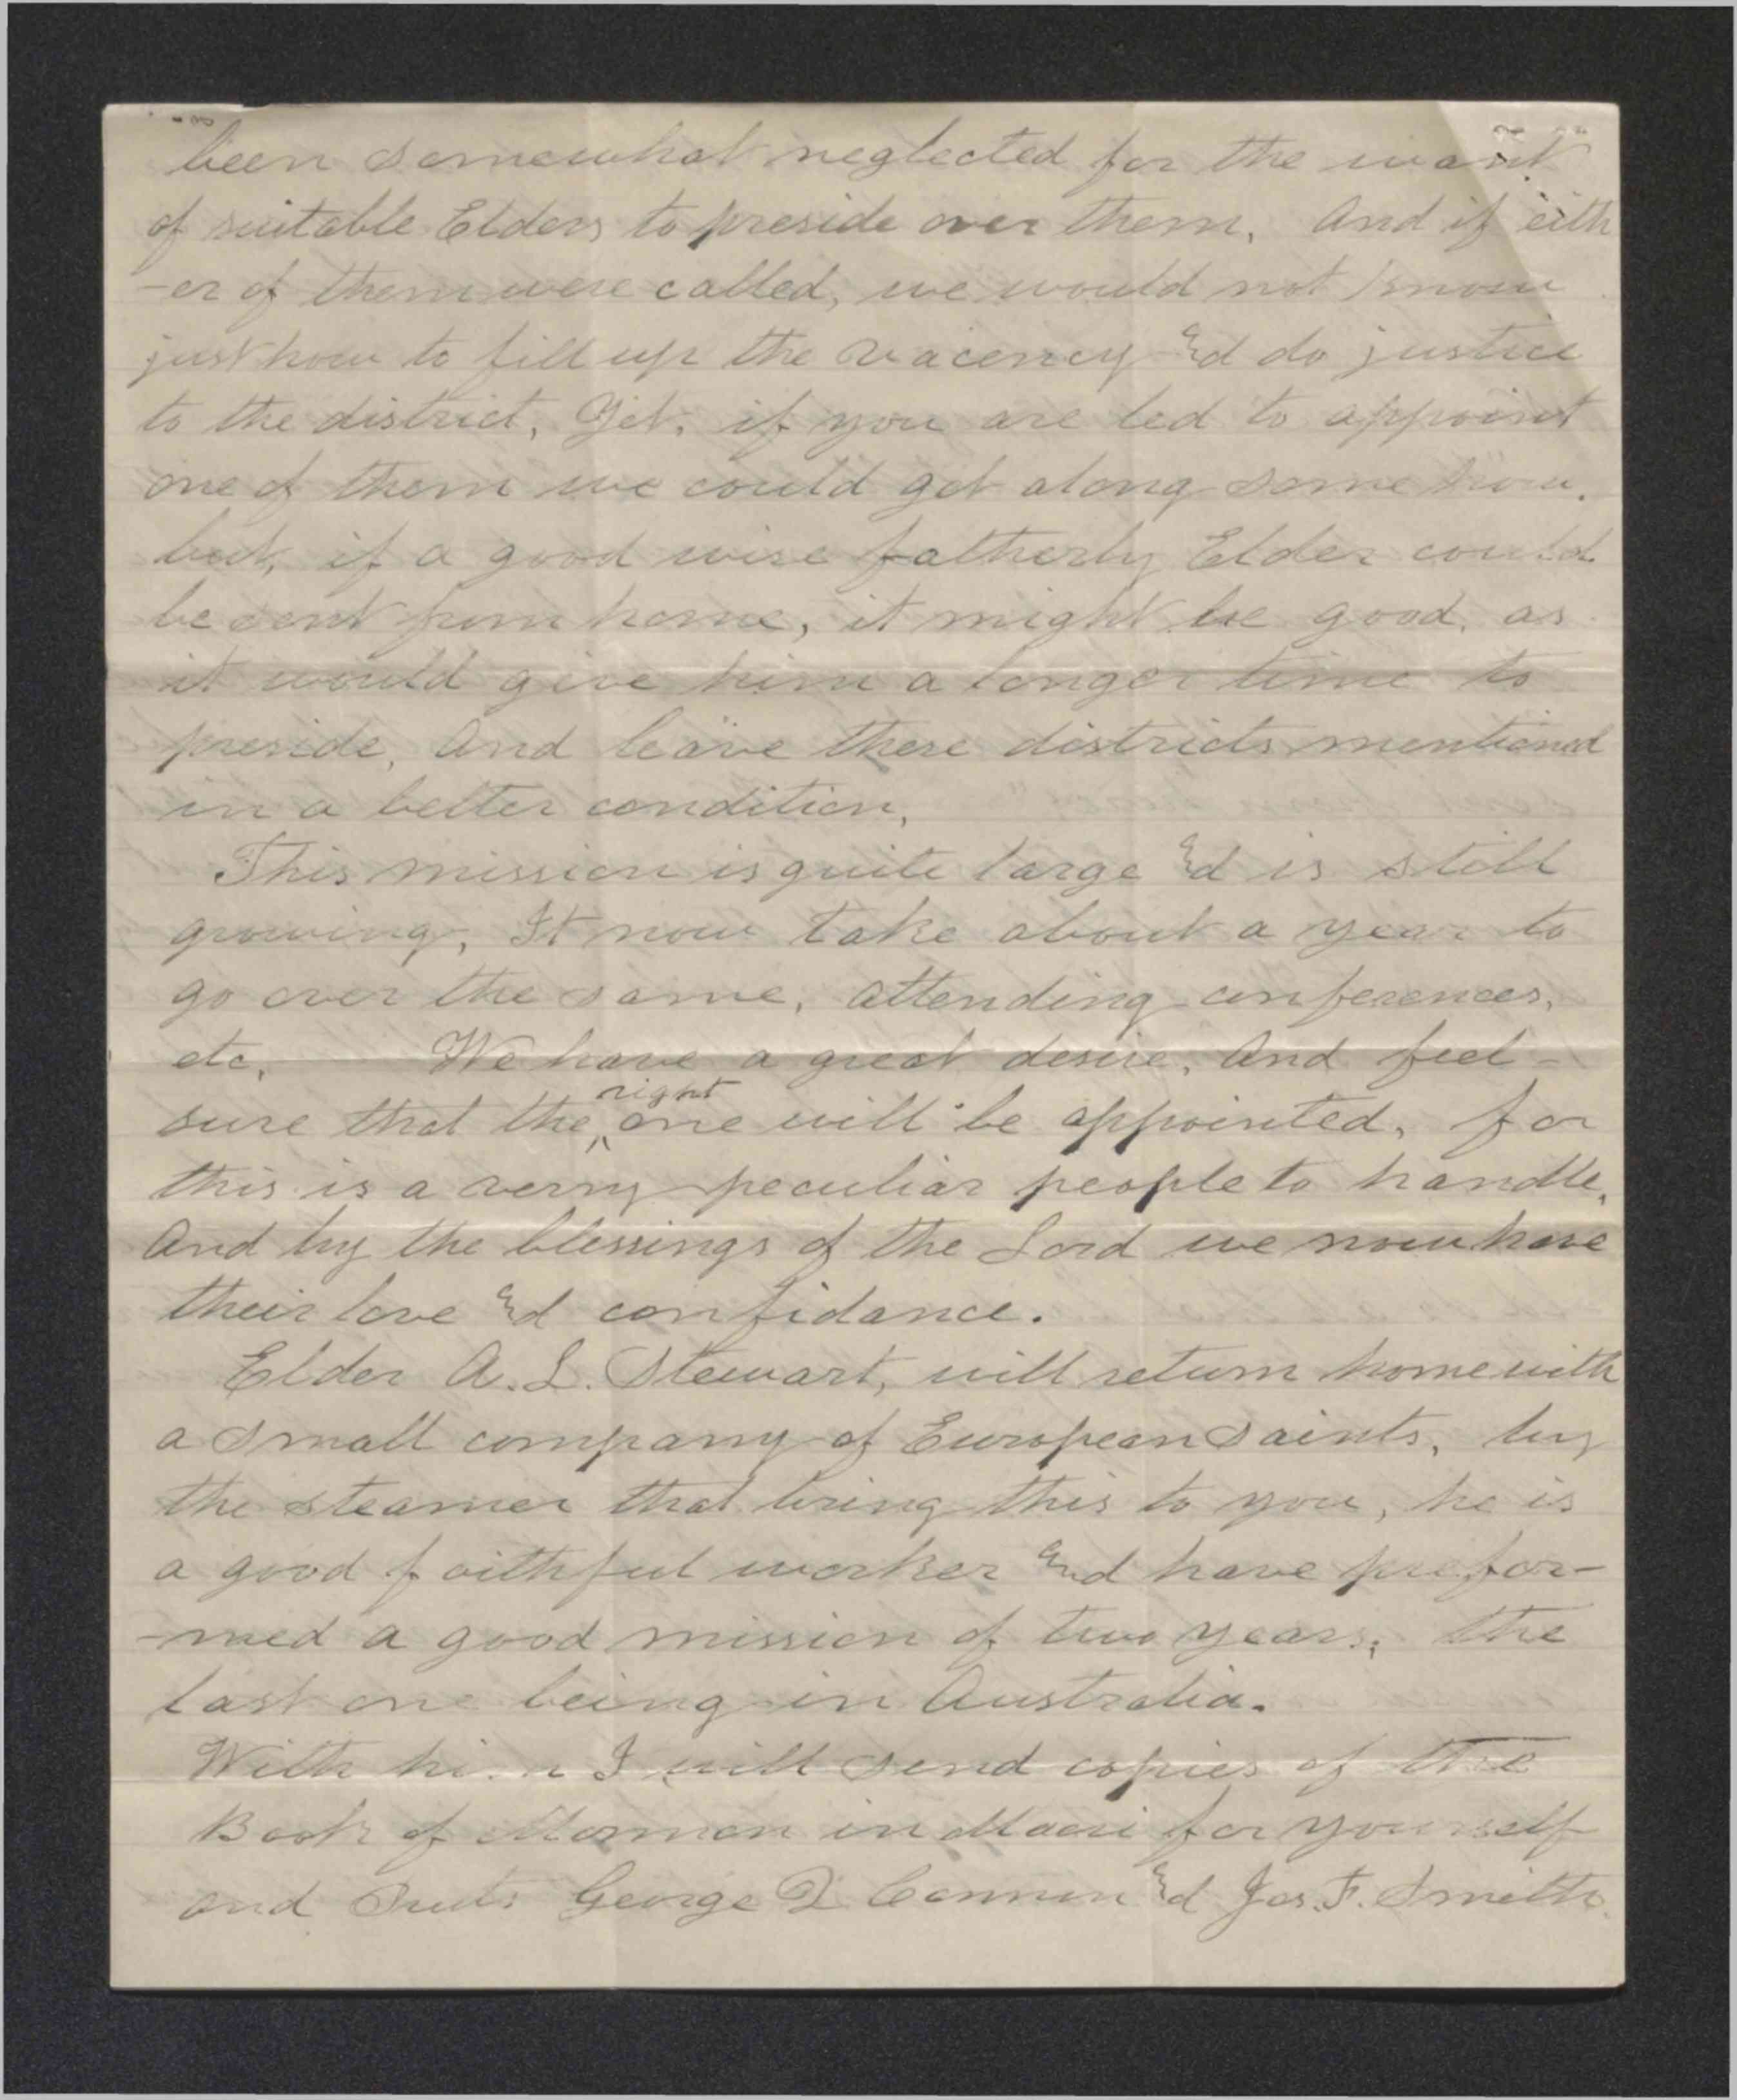 been somewhat neglected for the want
of suitable Elders to preside over them, And if eith
-er of them were called, we would not know
just how to fill up the vacency &d do justice
to the district, Yet, if you are led to appoint
one of them we could get along some how.
but, if a good wise fatherly Elder could
be sent from home, it might be good, as
it would give him a longer time to
preside, And leave these districts mentioned
in a better condition,
This mission is quite large &d is still
growing, It now take about a year to
go over the same, attending conferences,
etc, We have a great desire, And feel-
right
sure that the one will be appointed, for
this is a verry peculiar people to handle,
And by the blessings of the Lord we now have
their love &d confidance.
Elder A. L. Stewart, will return home with
a small company of European Saints, by
the steamer that bring this to you, he is
a good faithful worker &d have prefor-
-med a good mission of two years, the
last one being in Australia.
With him I will send copies of the
Book of Mormon in Maori for yourself
and Prests George Q Cannon &d Jos. F. Smith.